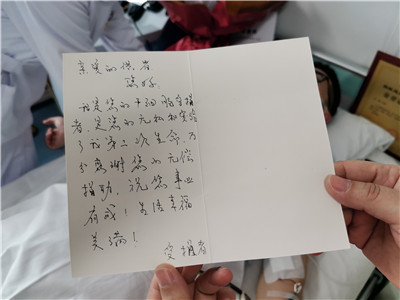 亲爱的供者
您好,
我是您的干细胞受捐
者,是您的无私和宽容
了我第二次生命,万
分感谢您的无偿
捐助,祝您事业
有成!生活幸福
美满!
受捐者